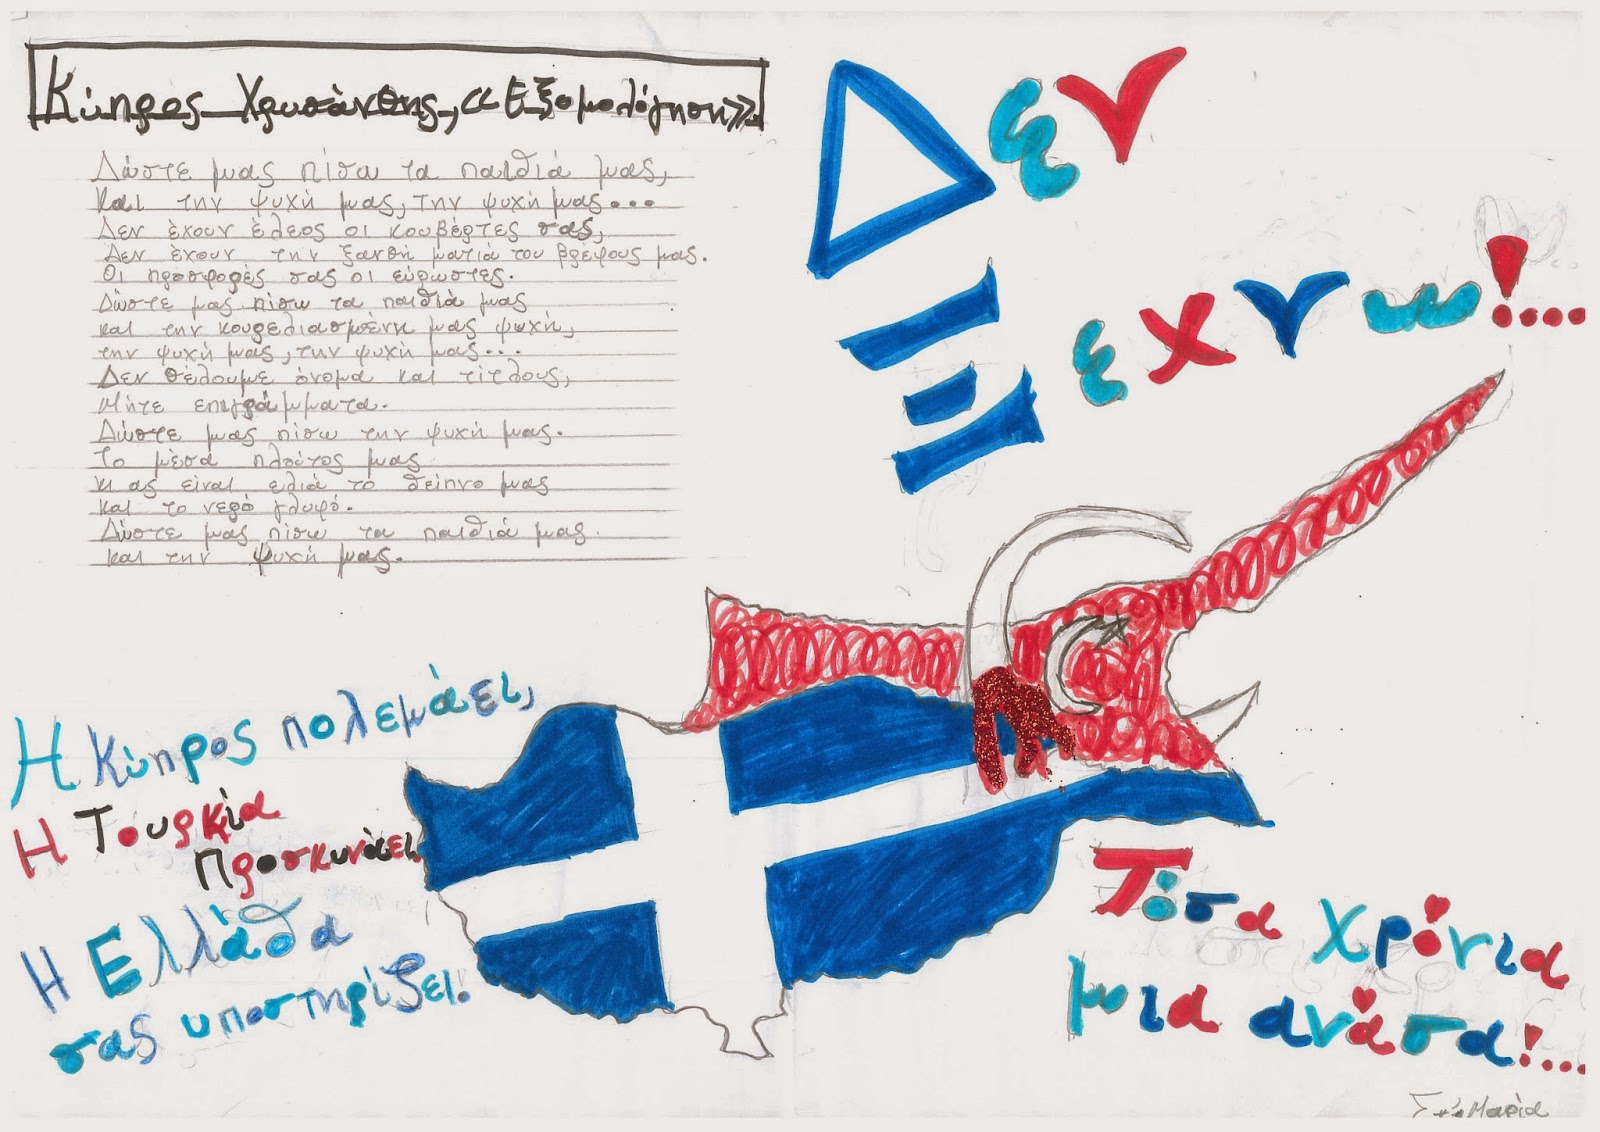 Κύπρος Χρυσάνθης, «Εξομολόγηση».
Δώστε μας πίσω τα παιδιά μας,
Και την ψυχή μας, την ψυχή μας...
Δεν έχουν έλεος οι κουβέρτες σας,
Δεν έχουν την ξανθή ματιά του βρέφους μας.
Οι προσφορές σας οι εύρωστες.
Δώστε μας πίσω τα παιδιά μας
και την κουρελιασμένη μας ψυχή,
την ψυχή μας, την ψυχή μας...
Δεν θέλουμε όνομα και τίτλους,
Μήτε επιγράμματα.
Δώστε μας πίσω την ψυχή μας.
Το μέσα πλούτος μας
κι ας είναι ελιά το δείπνο μας
και το νερό γλυφό.
Δώστε μας πίσω τα παιδιά μας
και την ψυχή μας.
Δεν
Ξεχνω!....
Η Κύπρος πολεμάει,
Η Τουρκία
προσκυνάει.
Η Ελλάδα
σας υποστηρίζει!
Τόσα χρόνια
μια ανάσα!....
Μαρία